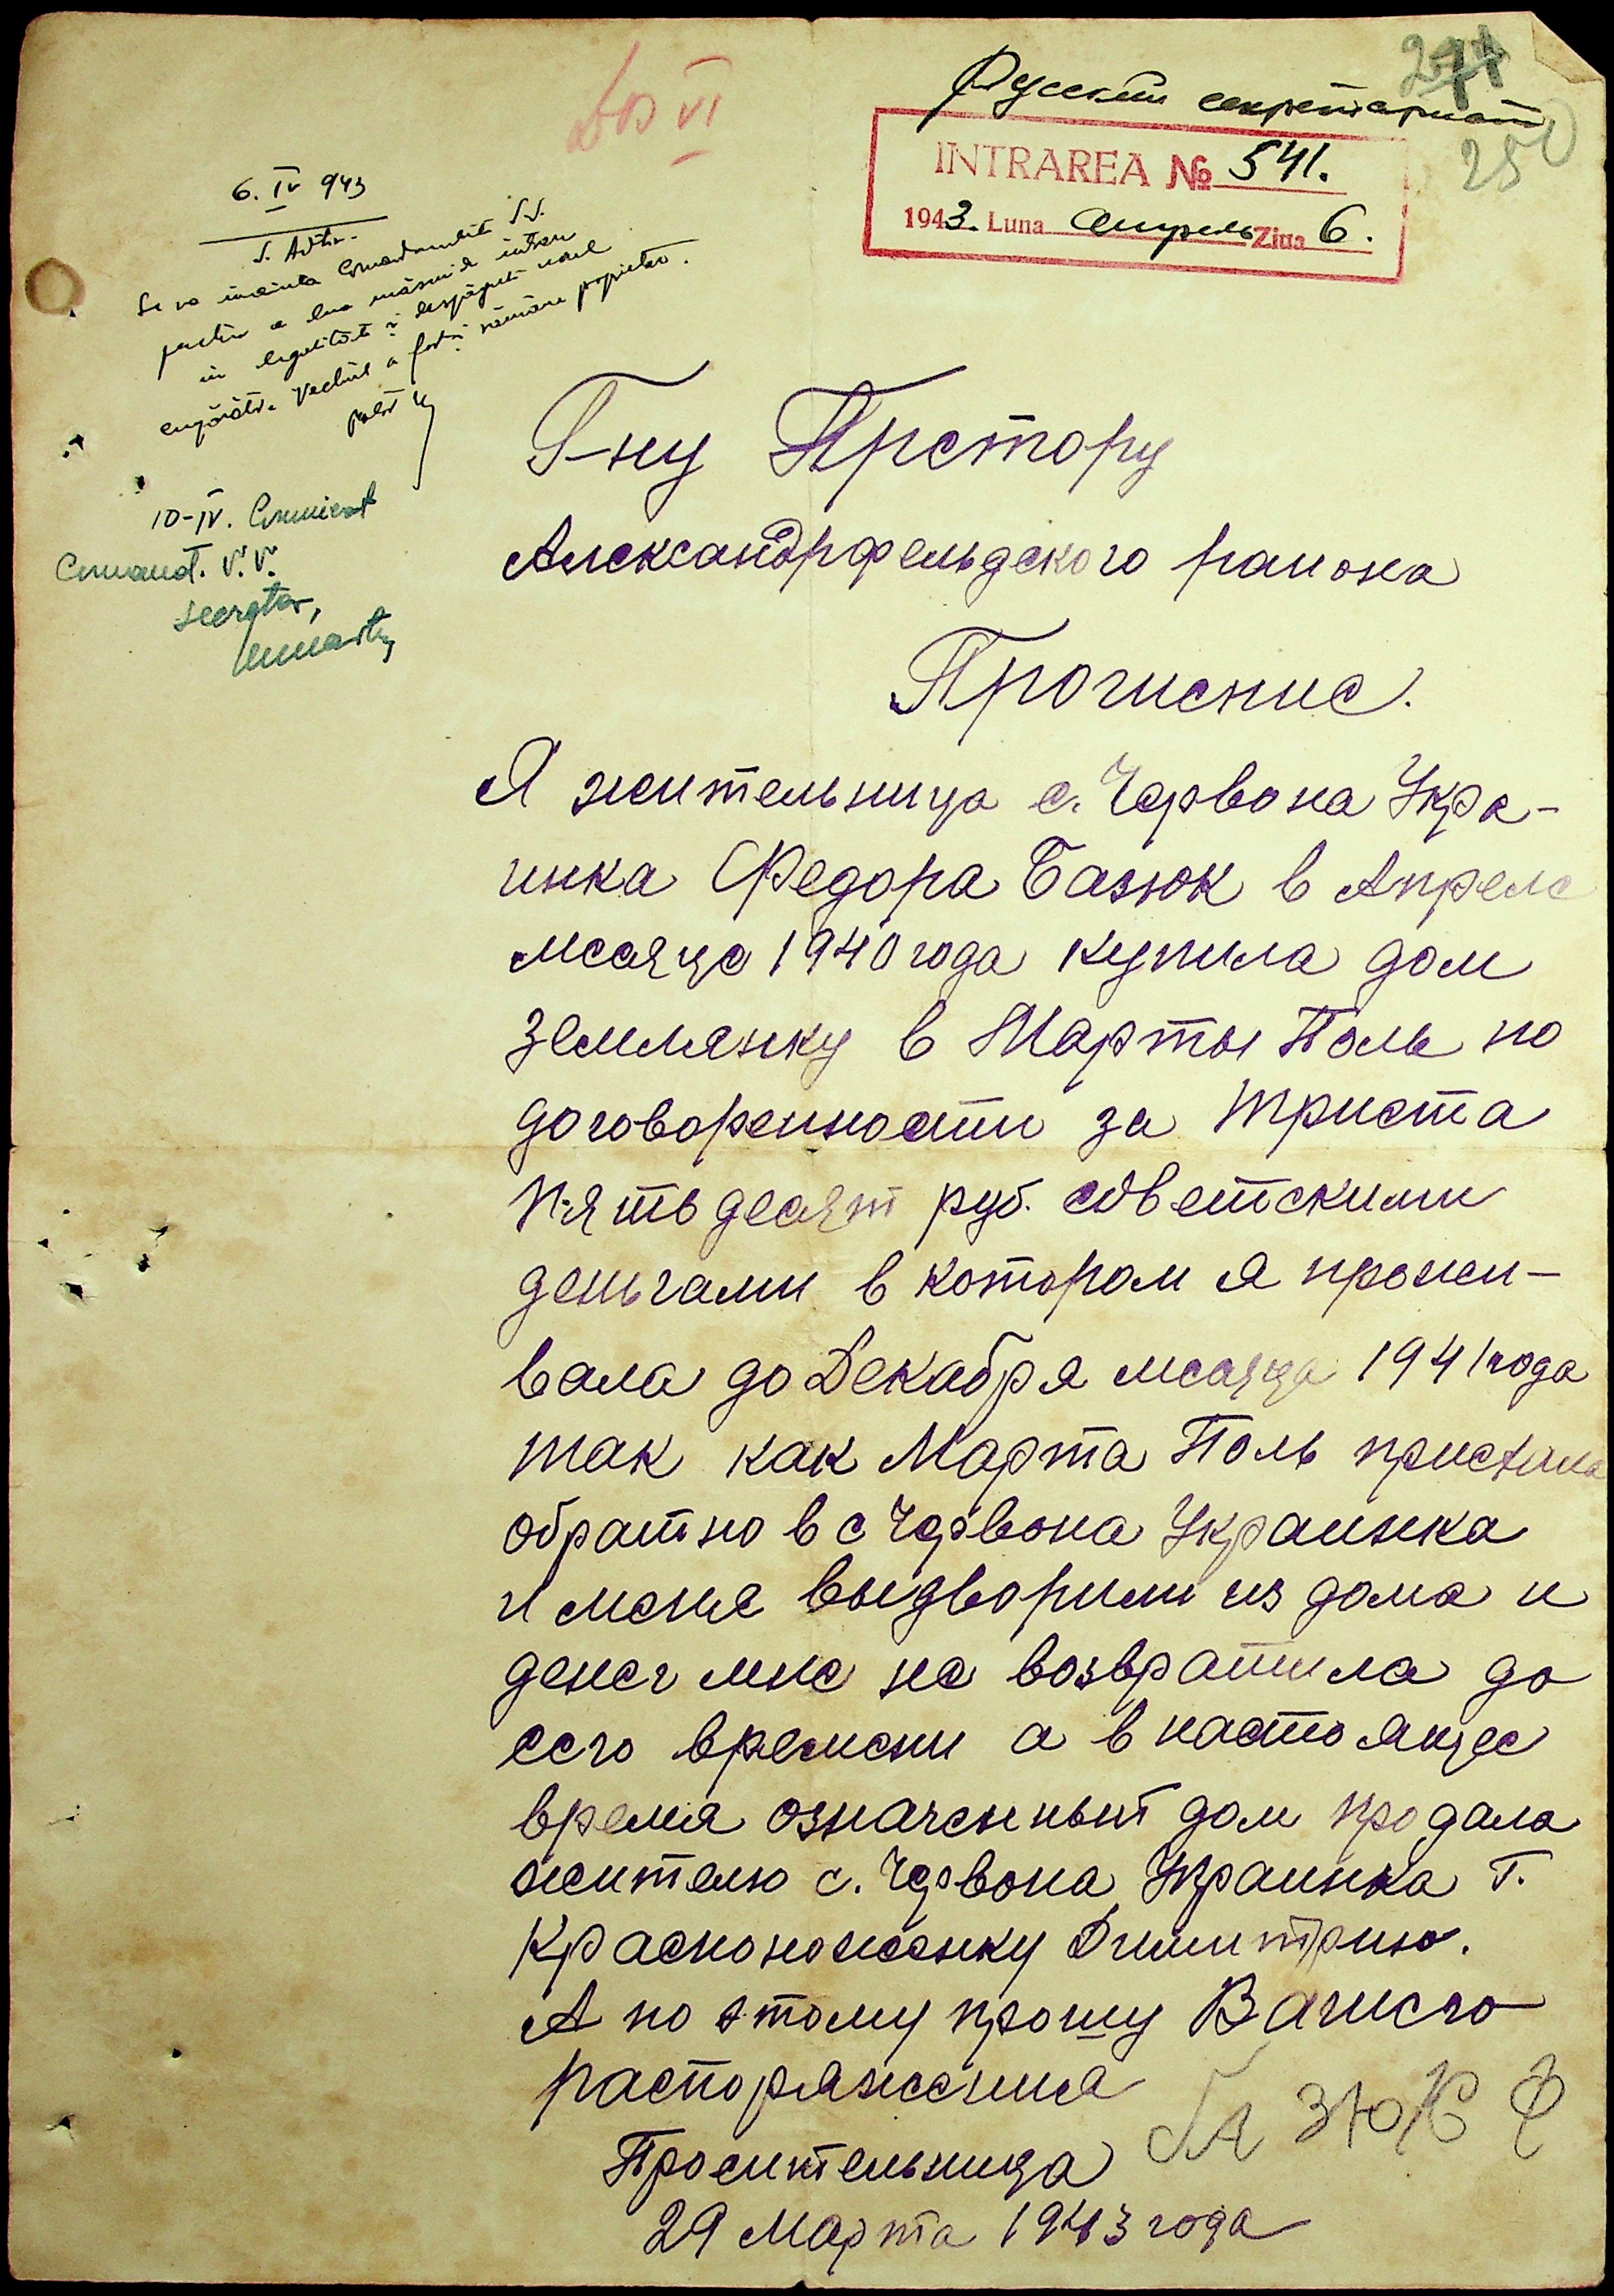 Dos VI
271
250
Русский секретариат
INTRAREA № 541.
1943. Luna Апрель Ziua 6.
6. IV 943
S. Adtiv.
Se va înainta Comandantului S.S.
pentru a lua măsuri de intrare
în legalitate și despăgubi
Vechiul a fost și rămâne proprietar.
10-IV. Comunicat
Comand. V.V.
Secretar,
Г-ну Претору
Александрфельдского раиона
Прошение.
Я жительница с. Червона Укра-
инка Федора Базюк в Апреле
месяце 1940 года купила дом
землянку в Марты Поль по
договоренности за триста
пять десят руб. советскими
деньгами в котором я прожи-
вала до Декабря месяца 1941 года
так как Марта Поль приехала
обратно в с Червона Украинка
и меня выдворили из дома и
денег мне не возвратила до
сего времени а в настоящее
время означенный дом продала
жителю с. Червона Украинка Г.
Красноноженку Димитрию.
А по этому прошу Вашего
распоряжения
Просительница БАЗЮК Ф
29 Марта 1943 года